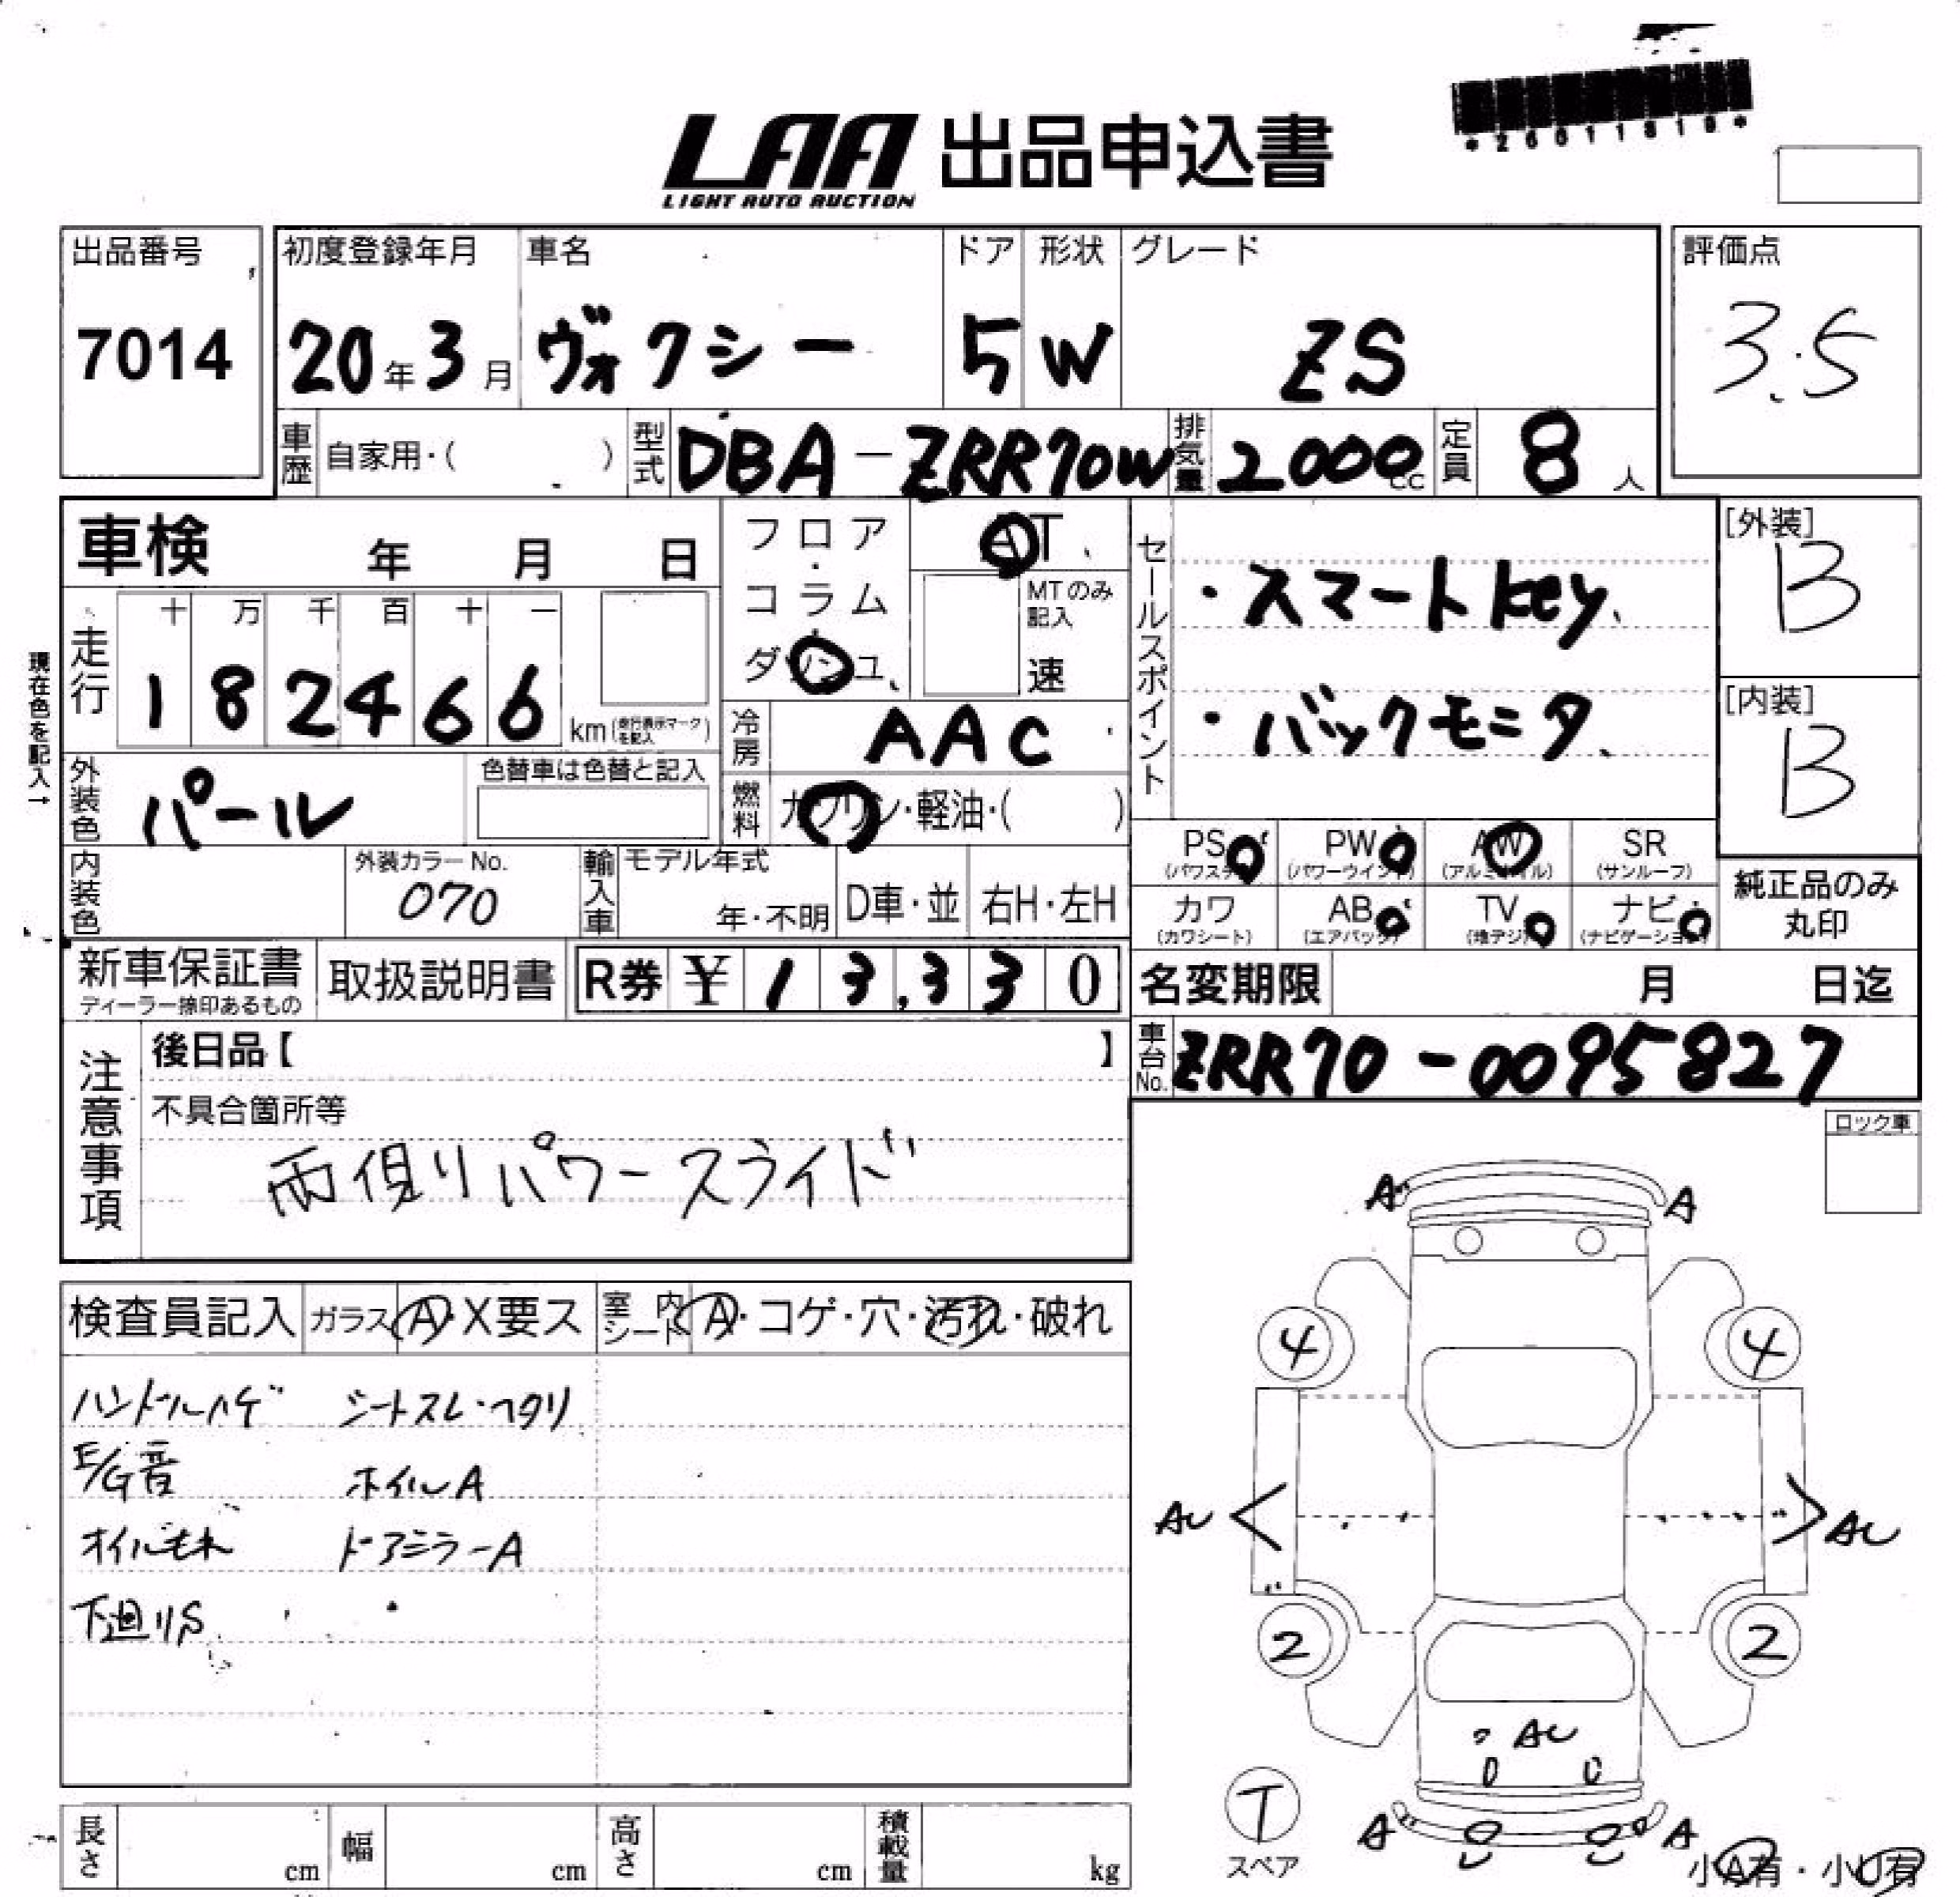 *26011819*
LAA 出品申込書
LIGHT AUTO AUCTION
出品番号 初度登録年月 車名 ドア 形状 グレード 評価点
7014 20年3月 ヴォクシー 5 W ZS 3.5
車歴 自家用・( ) 型式 DBA-ZRR70W 排気量 2000cc 定員 8人
車検 年 月 日
フロア・コラム・ダ ュ
AT
MTのみ記入
速
セールスポイント
・スマートkey
・バックモニタ
[外装] B
[内装] B
現在色を記入→
走行 十 万 千 百 十 一
182466 km(走行表示マークを記入)
冷房 AAC
外装色 パール 色替車は色替と記入
燃料 ガソリン・軽油・( )
PS (パワステ) PW (パワーウインド) AW (アルミホイル) SR (サンルーフ)
カワ (カワシート) AB (エアバッグ) TV (地デジ) ナビ (ナビゲーション)
純正品のみ丸印
内装色 外装カラーNo. 070 輸入車 モデル年式 年・不明 D車・並 右H・左H
新車保証書 ディーラー捺印あるもの 取扱説明書 R券 ¥13,330
名変期限 月 日迄
車台No. ZRR70-0095827
注意事項
後日品【 】
不具合箇所等
両側リパワースライド
ロック車
検査員記入 ガラス A・X要ス 室内シート A・コゲ・穴・汚れ・破れ
ハンドルハゲ シートスレ・ヘタリ
E/G音 ホイルA
オイルモレ ドアミラーA
下廻りS
A A
4 4
AU AU
2 2
AU
T
スペア
A A
小A有・小U有
長さ cm 幅 cm 高さ cm 積載量 kg